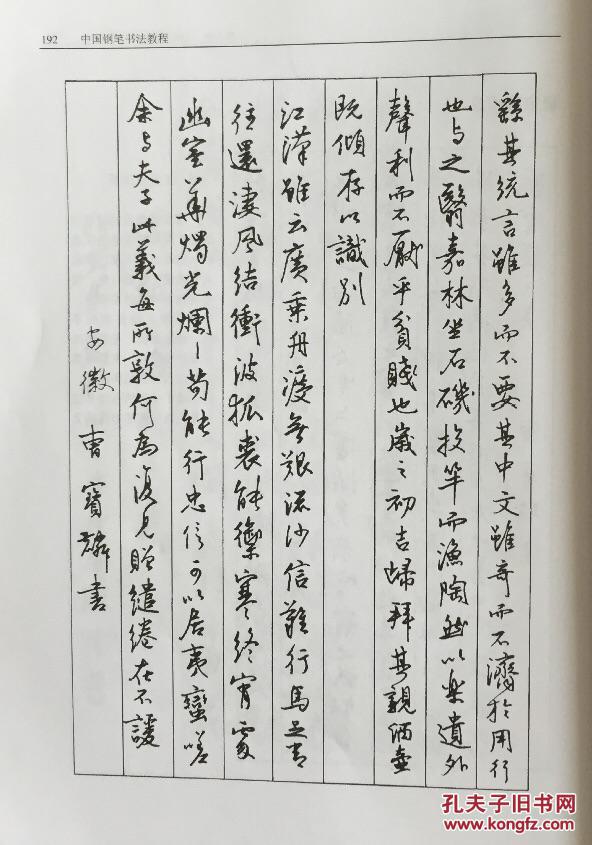 192 中国钢笔书法教程
繇其統言雖多而不要其中文雖奇而不濟於用行
也与之翳嘉林坐石磯投竿而漁陶然以樂遺外
聲利而不厭乎貧賤也歲之初吉歸拜其親酒壺
既傾存以識別
江漢雖云廣乘舟渡無艱流沙信難行馬足常
往還淒風結衝波狐裘能禦寒終宵處
幽室華燭光爛〻苟能行忠信可以居夷蠻嗟
余与夫子此義每所敦何為復見贈繾綣在不諼
安徽曹寶麟書
孔夫子旧书网